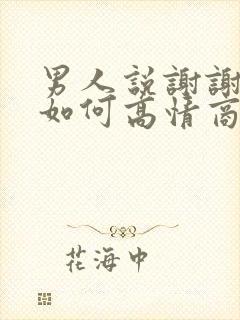 男人説謝謝
如何高情商
花海中